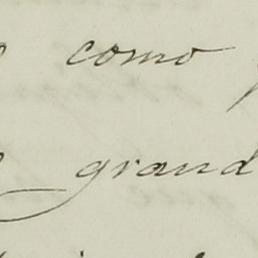 como
grand